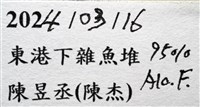 2024103116
東港下雜魚堆 95%
陳昱丞(陳杰) Alo.F.